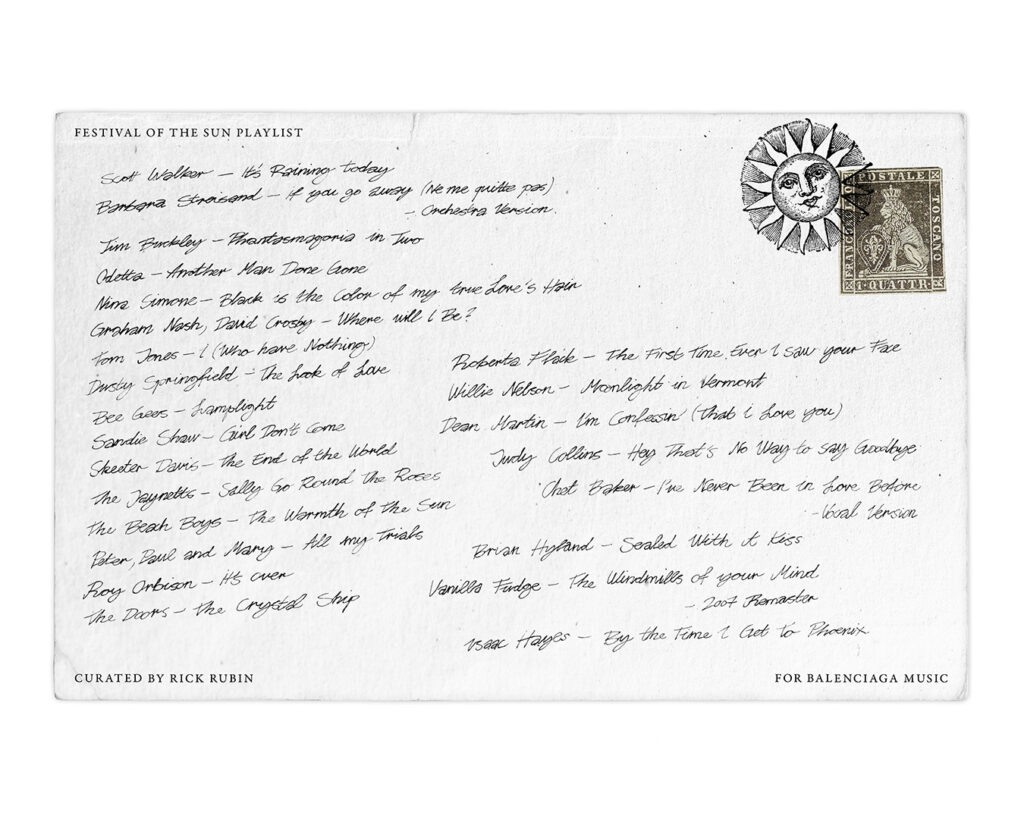 FESTIVAL OF THE SUN PLAYLIST
Scott Walker – It's Raining today
Barbara Streisand – if you go away (Ne me quitte pas)
– Orchestra Version.
Tim Buckley – Phantasmagoria in Two
Odetta – Another Man Done Gone
Nina Simone – Black is the Color of my true Love's Hair
Graham Nash, David Crosby – Where will I Be?
Tom Jones – I (Who have Nothing)
Dusty Springfield – The Look of Love
Bee Gees – Lamplight
Sandie Shaw – Girl Don't Come
Skeeter Davis – The End of the World
The Jaynetts – Sally Go Round the Roses
The Beach Boys – The Warmth of the Sun
Peter, Paul and Mary – All my Trials
Roy Orbison – it's over
The Doors – The Crystal Ship
Roberta Flack – The First Time Ever I saw your Face
Willie Nelson – Moonlight in Vermont
Dean Martin – I'm Confessin' (That i Love you)
Judy Collins – Hey That's No Way to say Goodbye
Chet Baker – I've Never Been in Love Before
– Vocal Version
Brian Hyland – Sealed With A Kiss
Vanilla Fudge – The Windmills of your Mind
– 2007 Remaster
Isaac Hayes – By the Time I Get to Phoenix
POSTALE
TOSCANO
1 QUATTR
CURATED BY RICK RUBIN
FOR BALENCIAGA MUSIC